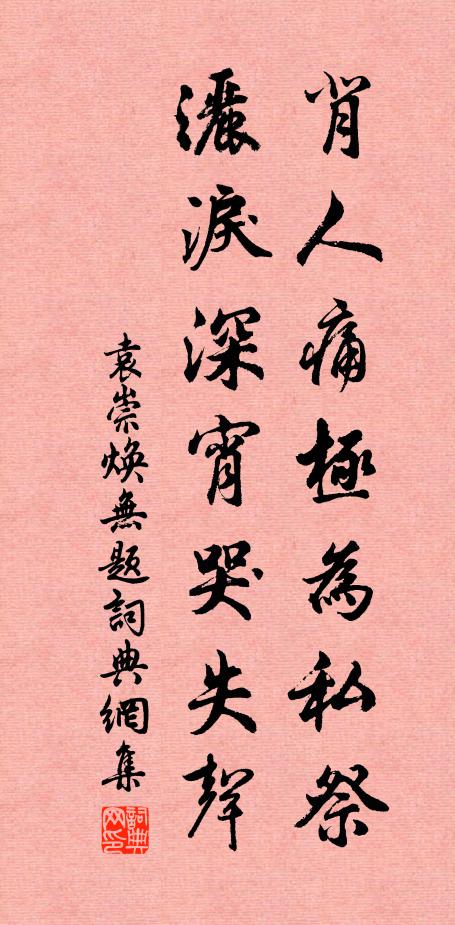 背人痛極為私祭
灑淚深宵哭失聲
袁崇煥無題詞典網集
詞典網印